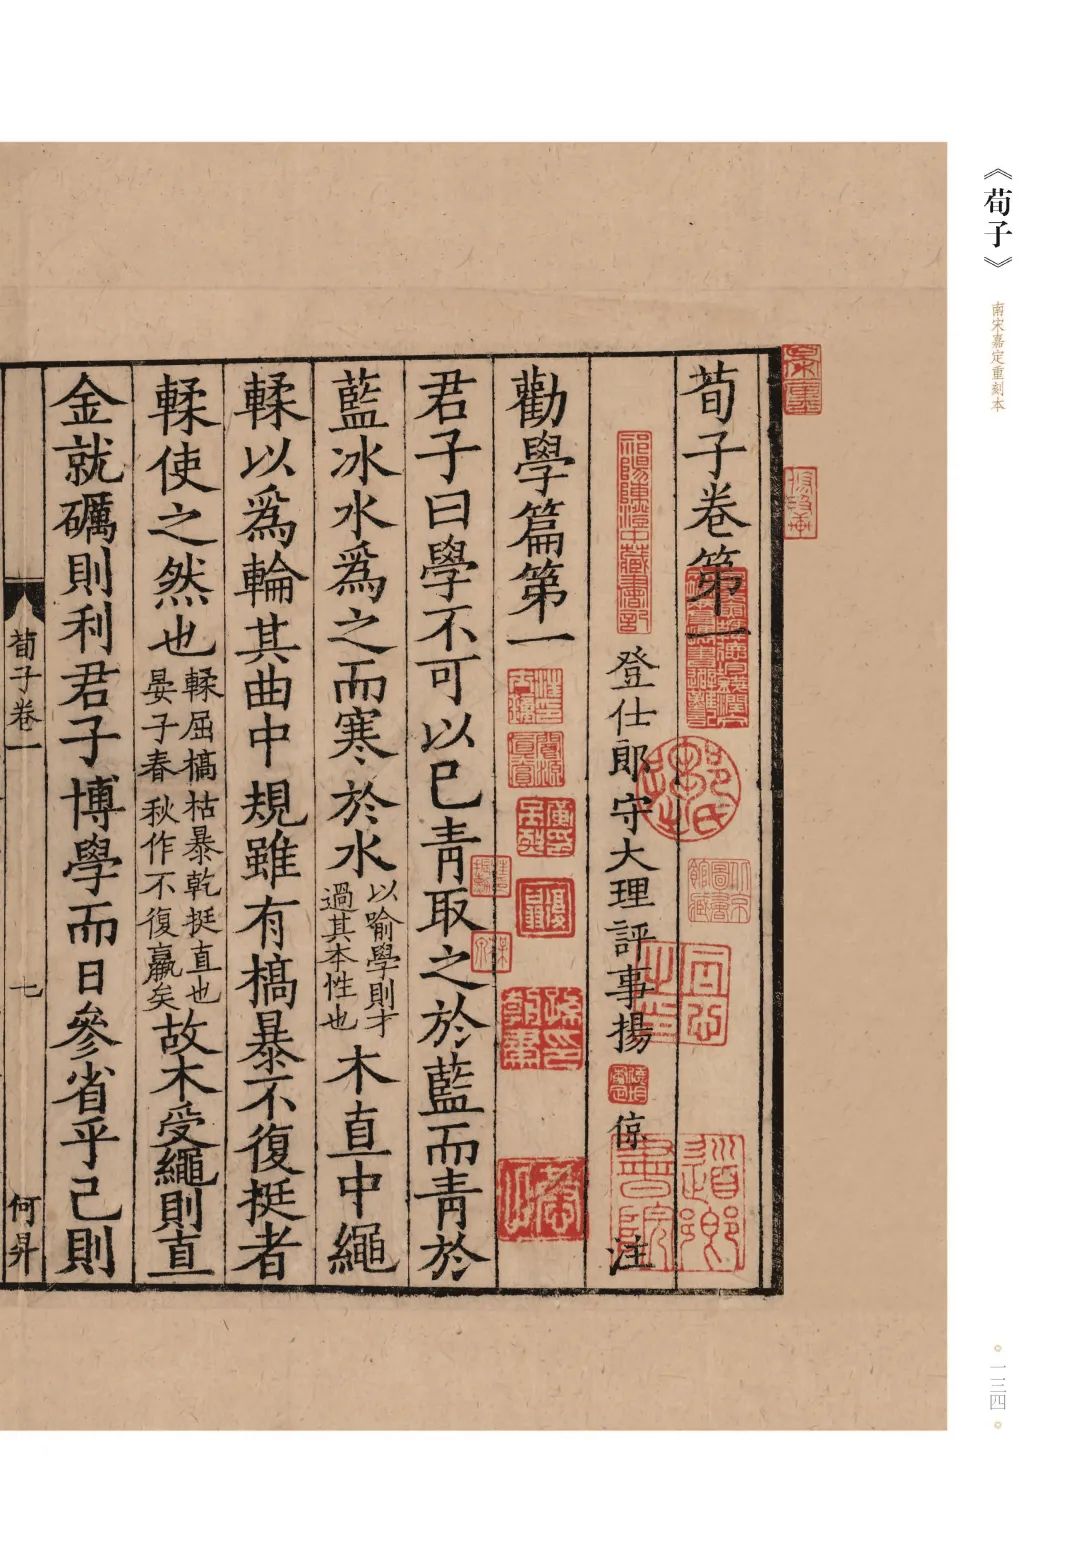 《荀子》
南宋嘉定重刻本
一三四
荀子卷第一
登仕郎守大理評事揚倞注
勸學篇第一
君子曰學不可以已青取之於藍而青於
藍冰水爲之而寒於水以喻學則才過其本性也木直中繩
輮以爲輪其曲中規雖有槁暴不復挺者
輮使之然也輮屈槁枯暴乾挺直也晏子春秋作不復贏矣故木受繩則直
金就礪則利君子博學而日參省乎己則
荀子卷一
七
何昇
祁陽陳澄中藏書記